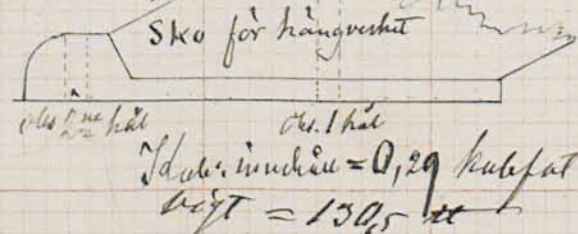 Sko för hängverket
obs hål
obs. 1 hål
innehåll = 0,29 kubfot
vigt = 130,5 ℔